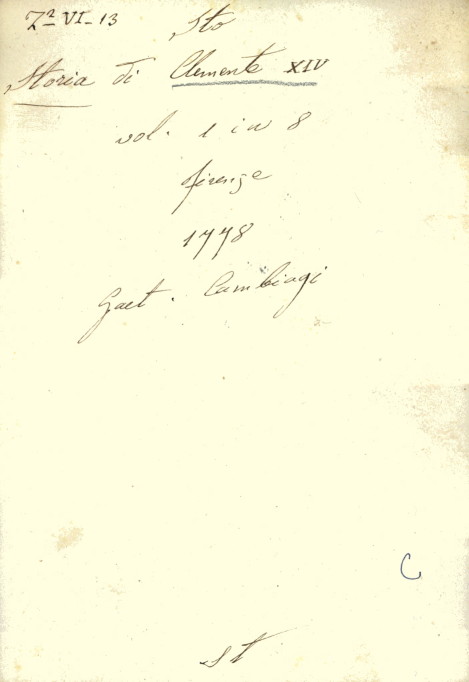 Zª VI-13
Sto
Storia di Clemente XIV
vol. 1 in 8
firenze
1778
Gaet. Cambiagi
C
st